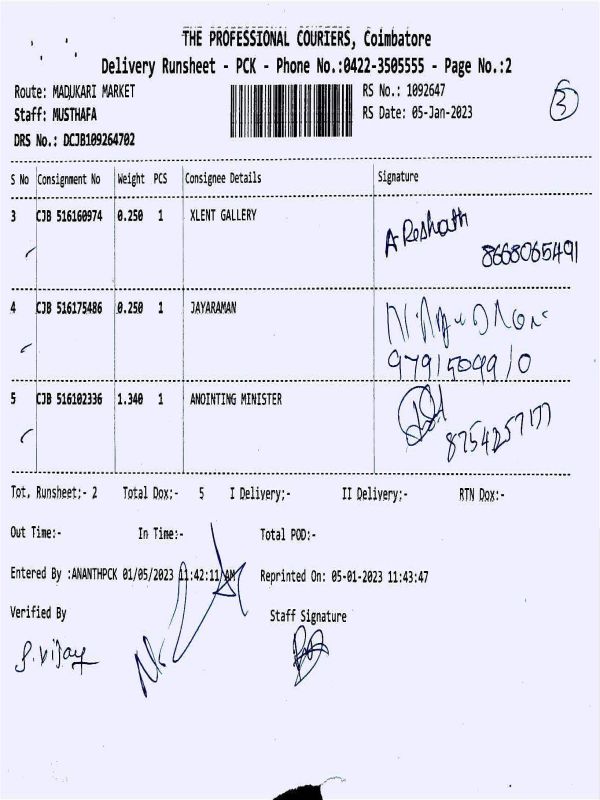 THE PROFESSIONAL COURIERS, Coimbatore
Delivery Runsheet - PCK - Phone No.:0422-3505555 - Page No.:2
Route: MADUKARI MARKET RS No.: 1092647
Staff: MUSTHAFA RS Date: 05-Jan-2023
3
DRS No.: DCJB109264702
S No Consignment No Weight PCS Consignee Details Signature
3 CJB 516160974 0.250 1 XLENT GALLERY
A Reshath
8668065491
4 CJB 516175486 0.250 1 JAYARAMAN
9791509910
5 CJB 516102336 1.340 1 ANOINTING MINISTER
8754257177
Tot. Runsheet;- 2 Total Dox;- 5 I Delivery;- II Delivery;- RTN Dox:-
Out Time:- In Time:- Total POD:-
Entered By :ANANTHPCK 01/05/2023 11:42:11 AM Reprinted On: 05-01-2023 11:43:47
Verified By Staff Signature
P. Vijay